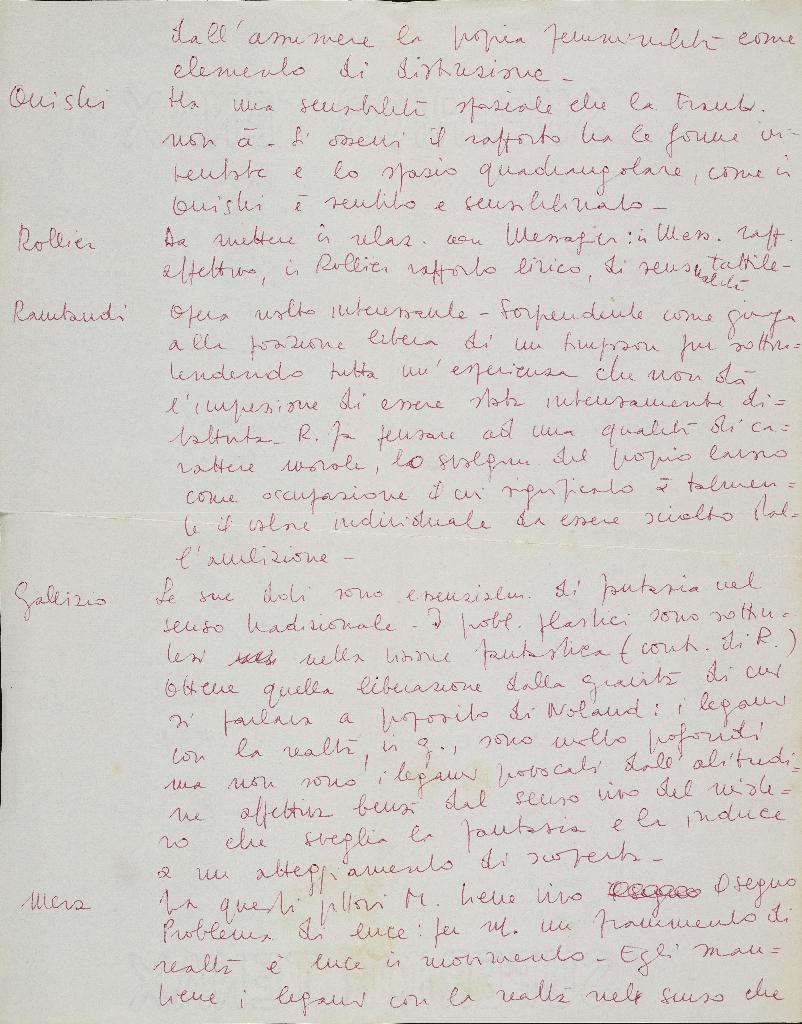 dall'assumere la propria femminilità come
elemento di distruzione -
Onishi Ha una sensibilità spaziale che la
non à - Si osservi il rapporto tra le forme in-
ventate e lo spazio quadrangolare, come in
Onishi è sentito e sensibilizzato -
Rollier Da mettere in relaz. con Messagier: in Mess. rapp.
affettivo, in Rollier rapporto lirico, di sensualità tattile -
Rambaudi Opera molto interessante - Sorprendente come giunga
alla posizione libera di un Thompson pur sottin-
tendendo tutta un'esperienza che non dà
l'impressione di essere stata intensamente di=
battuta - R. fa pensare ad una qualità di ca=
rattere morale, lo svolgere del proprio lavoro
come occupazione il cui significato è talmen=
te il valore individuale da essere sciolto dal=
l'ambizione -
Gallizio Le sue doti sono essenzialm. di fantasia nel
senso tradizionale - I probl. plastici sono sottin-
tesi nella visione fantastica (contr. di R.)
Ottiene quella liberazione dalla gravità di cui
si parlava a proposito di Noland: i legami
con la realtà, in g., sono molto profondi
ma non sono i legami provocati dall'abitudi=
ne affettiva bensì dal senso vivo del miste=
ro che sveglia la fantasia e la induce
a un atteggiamento di scoperta -
Merz Tra questi pittori M. tiene vivo Disegno
Problema di luce: per M. un frammento di
realtà è luce in movimento - Egli man=
tiene i legami con la realtà nel senso che